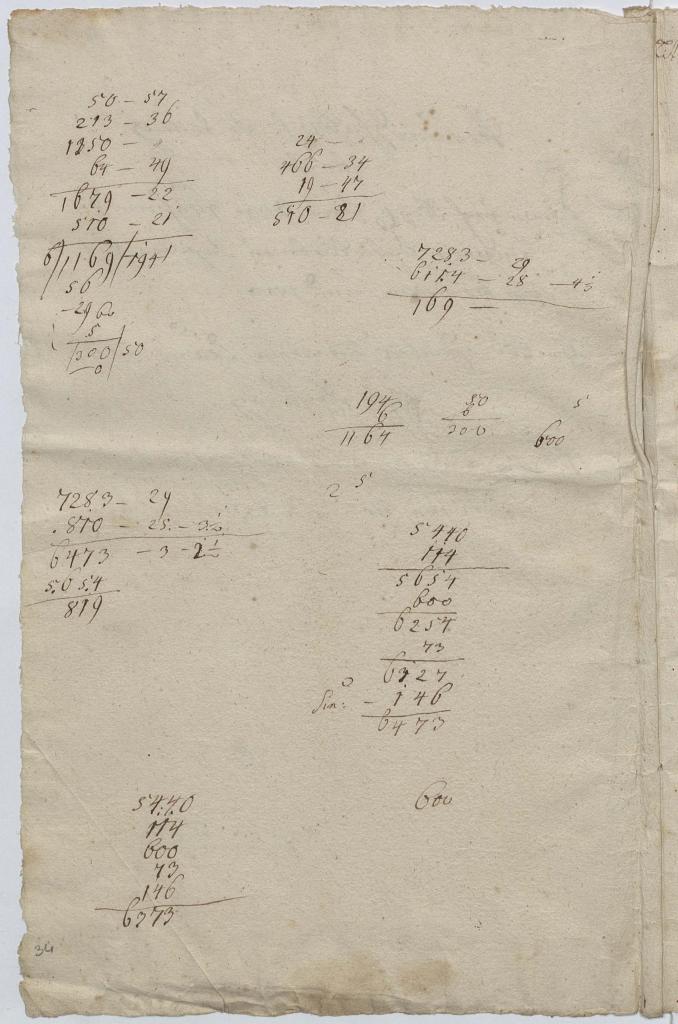 50 – 57
213 – 36
1250 –
64 – 49
1679 – 22
510 – 21
6/1169/194
56
29
5
300/50
0
24 –
466 – 34
19 – 47
510 – 21
7283 – 29
6114 – 25
169 –
194
6
1164
50
6
300
5
600
2 5
7283 – 29
810 – 25 – 3½
6473 – 3 – 2½
5654
819
5440
114
5654
600
6254
73
6327
– 146
6473
5440
114
600
73
146
6373
600
34